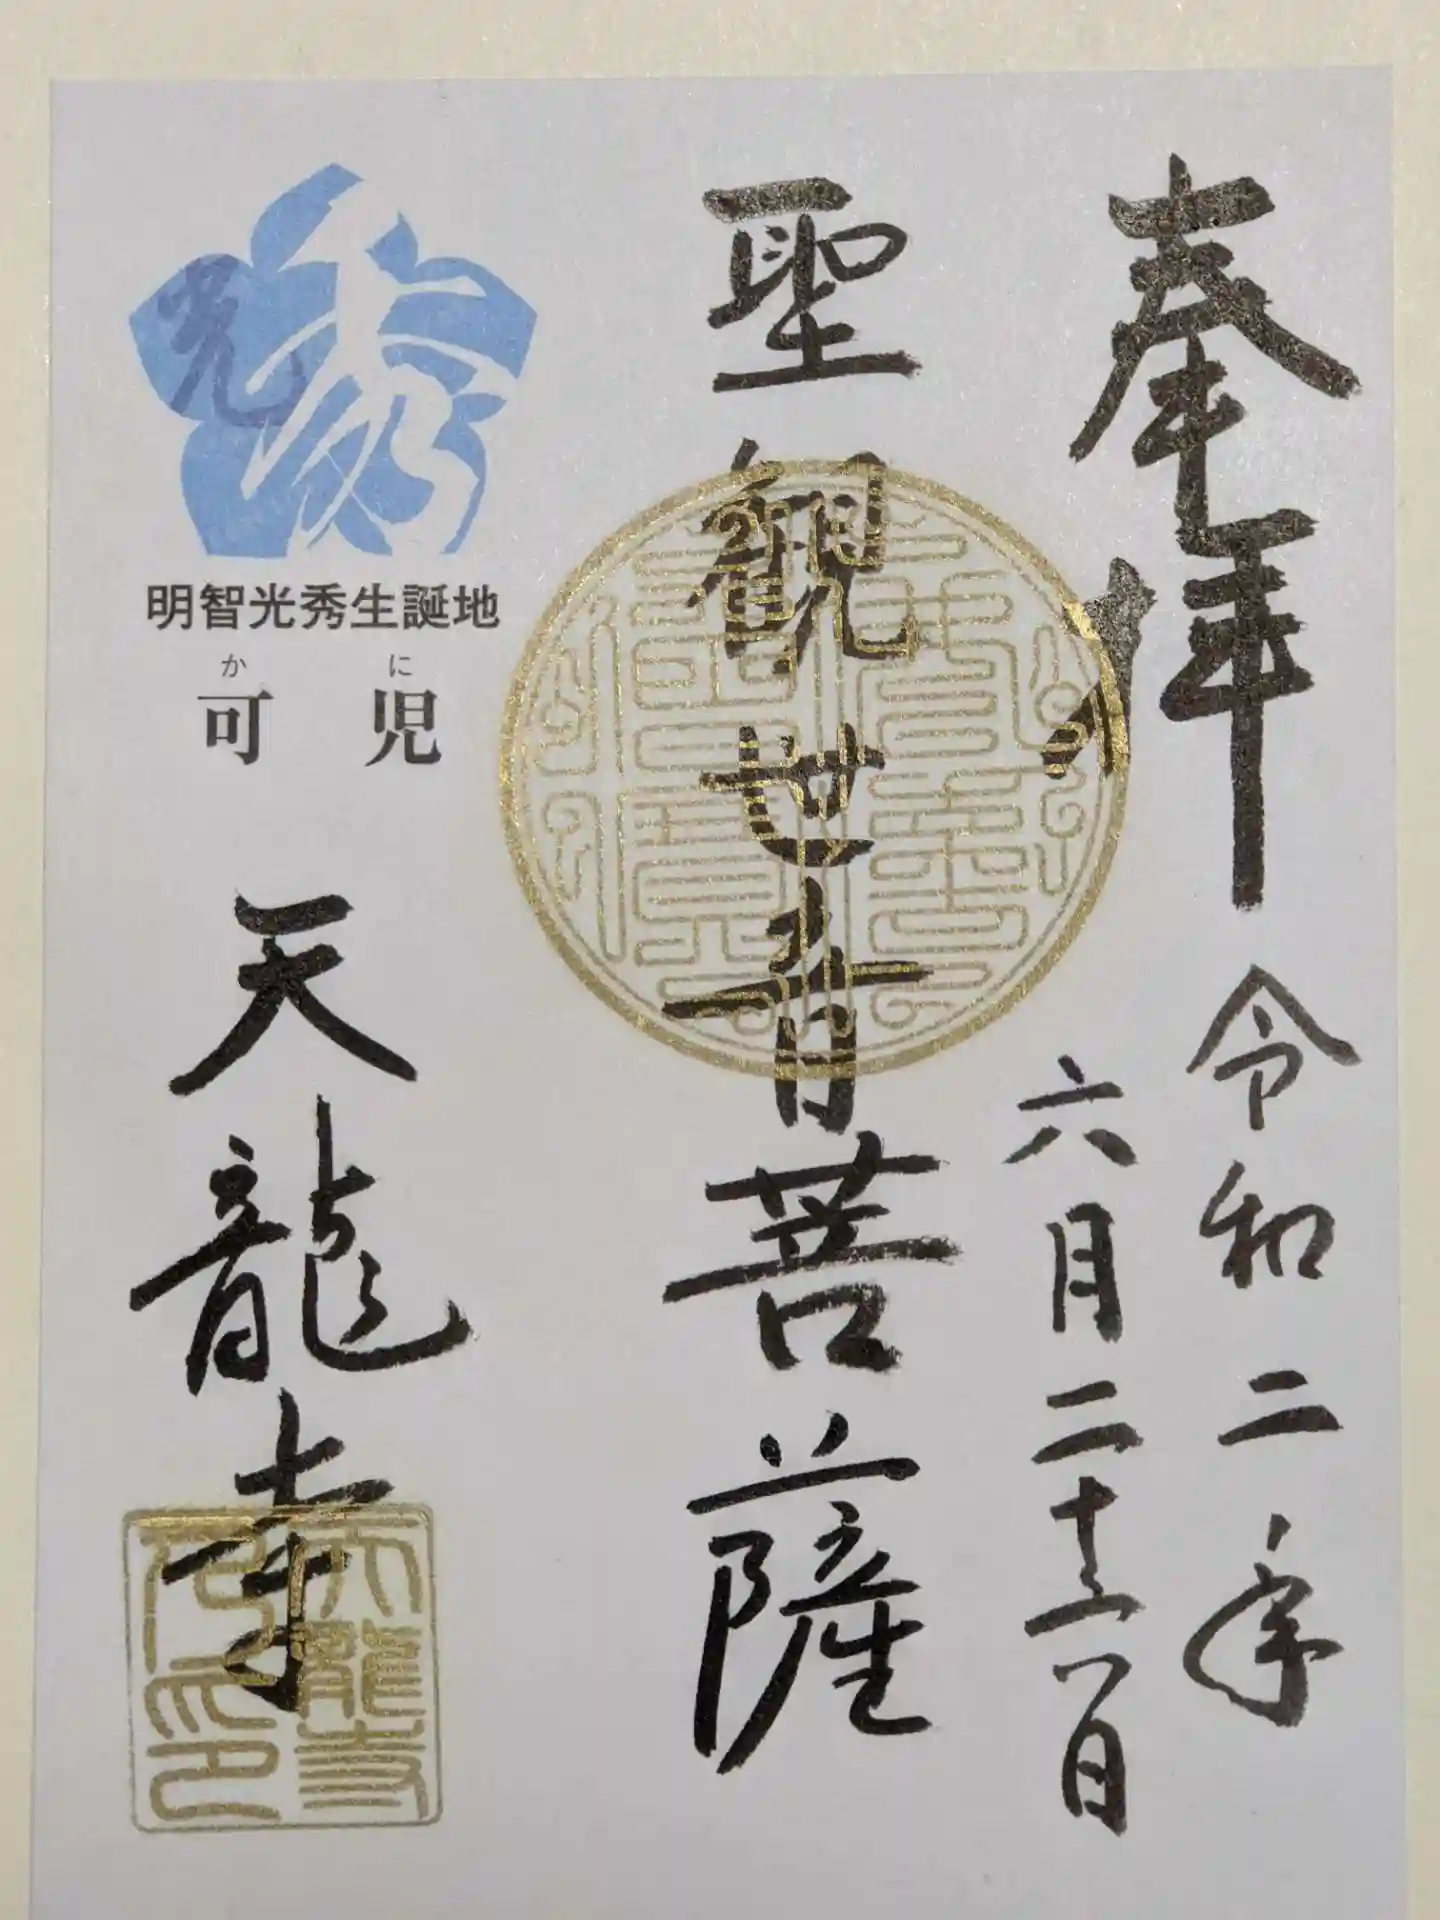 奉拝
令和二年
六月二十二日
聖観世音菩薩
光秀
明智光秀生誕地
かに
可児
天龍寺
天龍寺